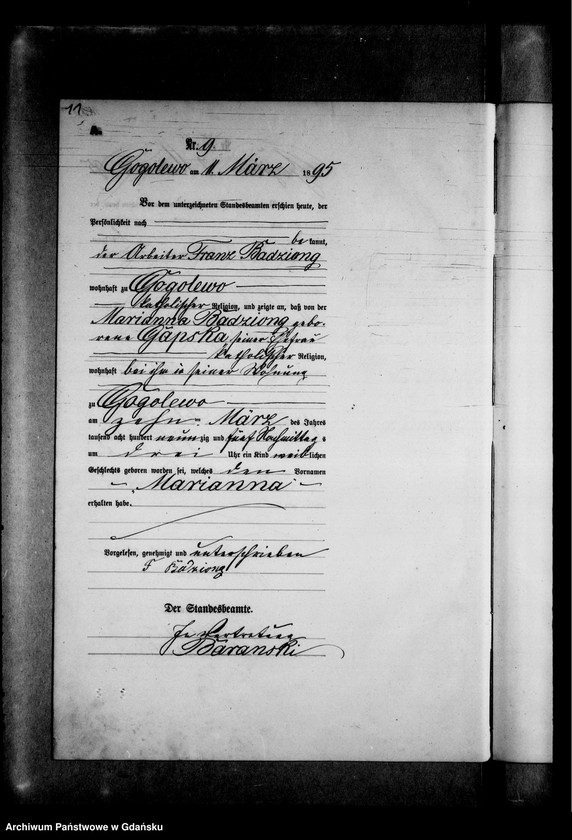 11
Nr. 9.
Gogolewo am 11. März 1895
Vor dem unterzeichneten Standesbeamten erschien heute, der
Persönlichkeit nach
be kannt,
der Arbeiter Franz Badziong
wohnhaft zu Gogolewo
katholischer Religion, und zeigte an, daß von der
Marianna Badziong gebo-
rene Gapska, seiner Ehefrau
katholischer Religion,
wohnhaft bei ihm in seiner Wohnung
zu Gogolewo
am zehn März des Jahres
tausend acht hundert neun zig und fünf Nachmittag s
um drei Uhr ein Kind weib lichen
Geschlechts geboren worden sei, welches den Vornamen
Marianna
erhalten habe.
Vorgelesen, genehmigt und unterschrieben
F Badziong
Der Standesbeamte.
In Vertretung
Baranski
Archiwum Państwowe w Gdańsku